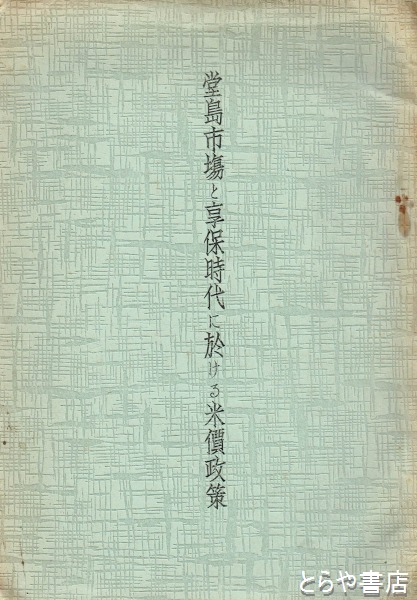 堂島市塲と享保時代に於ける米價政策
とらや書店